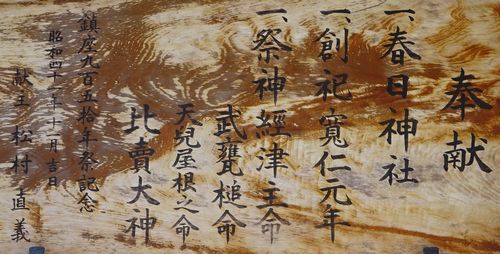 奉献
一、春日神社
一、創祀寛仁元年
一、祭神經津主命
武甕槌命
天兒屋根之命
比賣大神
鎮座九百五拾年祭記念
昭和四十一年十一月吉日
献主 松村直義